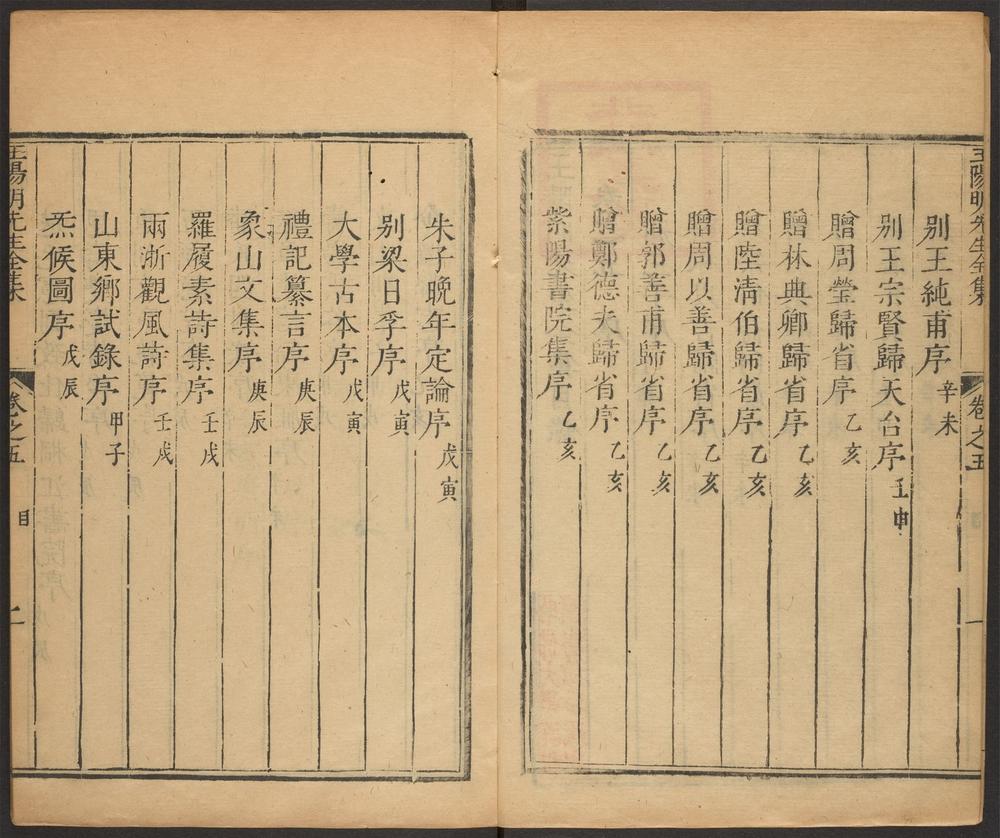 王陽明先生全集
卷之五
一
别王純甫序 辛未
别王宗賢歸天台序 壬申
贈周瑩歸省序 乙亥
贈林典卿歸省序 乙亥
贈陸淸伯歸省序 乙亥
贈周以善歸省序 乙亥
贈郭善甫歸省序 乙亥
贈鄭德夫歸省序 乙亥
紫陽書院集序 乙亥
朱子晚年定論序 戊寅
别梁日孚序 戊寅
大學古本序 戊寅
禮記纂言序 庚辰
象山文集序 庚辰
羅履素詩集序 壬戌
兩浙觀風詩序 壬戌
山東鄉試錄序 甲子
炁候圖序 戊辰
王陽明先生全集
卷之五
目
二